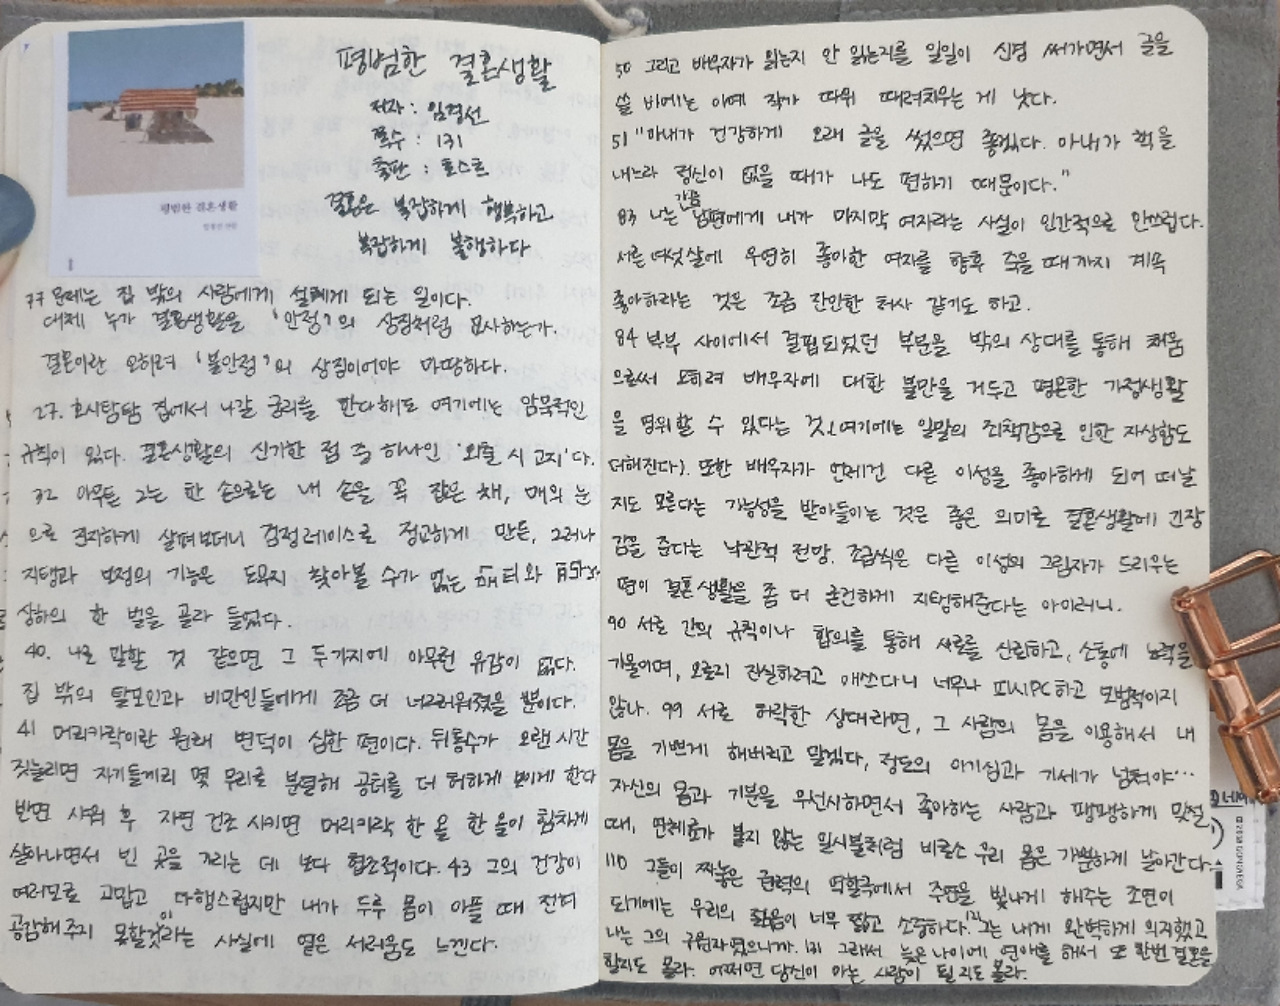 평범한 결혼생활
저자 : 임경선
쪽수 : 131
출판 : 토스트
결혼은 복잡하게 행복하고
복잡하게 불행하다
평범한 결혼생활
문제는 집 밖의 사람에게 설레게 되는 일이다.
대체 누가 결혼생활을 '안정'의 상징처럼 묘사하는가.
결혼이란 오히려 '불안정'의 상징이어야 마땅하다.
27. 호시탐탐 집에서 나갈 궁리를 한다해도 여기에는 암묵적인
규칙이 있다. 결혼생활의 신기한 점 중 하나인 '외출 시 고지'다.
32 아무튼 그는 한 손으로는 내 손을 꼭 잡은 채, 매의 눈
으로 진지하게 살펴보더니 검정레이스로 정교하게 만든, 그러나
지탱과 보정의 기능은 도무지 찾아볼 수가 없는
상하의 한 벌을 골라 들었다.
40. 나로 말할 것 같으면 그 두가지에 아무런 유감이 없다.
집 밖의 탈모인과 비만인들에게 조금 더 너그러워졌을 뿐이다.
41 머리카락이란 원래 변덕이 심한 편이다. 뒤통수가 오랜 시간
짓눌리면 자기들끼리 몇 무리로 분열해 공터를 더 허하게 보이게 한다
반면 샤워 후 자연 건조 시키면 머리카락 한 올 한 올이 힘차게
살아나면서 빈 곳을 가리는 데 보다 협조적이다. 43 그의 건강이
여러모로 고맙고 다행스럽지만 내가 두루 몸이 아플 때 전혀
공감해주지 못할 것이라는 사실에 옅은 서러움도 느낀다.
50 그리고 배우자가 읽는지 안 읽는지를 일일이 신경 써가면서 글을
쓸 바에는 아예 작가 따위 때려치우는 게 낫다.
51 "아내가 건강하게 오래 글을 썼으면 좋겠다. 아내가 책을
내느라 정신이 없을 때가 나도 편하기 때문이다."
83 나는 가끔 남편에게 내가 마지막 여자라는 사실이 인간적으로 안쓰럽다.
서른 여섯살에 우연히 좋아한 여자를 향후 죽을 때까지 계속
좋아하라는 것은 조금 잔인한 처사 같기도 하고.
84 부부 사이에서 결핍되었던 부분을 밖의 상대를 통해 채움
으로써 오히려 배우자에 대한 불만을 거두고 평온한 가정생활
을 영위할 수 있다는 것(여기에는 일말의 죄책감으로 인한 자상함도
더해진다). 또한 배우자가 언제건 다른 이성을 좋아하게 되어 떠날
지도 모른다는 가능성을 받아들이는 것은 좋은 의미로 결혼생활에 긴장
감을 준다는 낙관적 전망. 조금씩은 다른 이성의 그림자가 드리우는
편이 결혼생활을 좀 더 온건하게 지탱해준다는 아이러니.
90 서로 간의 규칙이나 합의를 통해 서로를 신뢰하고, 소통에 노력을
기울이며, 오로지 진실하려고 애쓰다니 너무나 피시PC하고 모범적이지
않나. 99 서로 허락한 상대라면, 그 사람의 몸을 이용해서 내
몸을 기쁘게 해버리고 말겠다, 정도의 이기심과 기세가 넘쳐야…
자신의 몸과 기분을 우선시하면서 좋아하는 사람과 팽팽하게 맞설
때, 연체료가 붙지 않는 일시불처럼 비로소 우리 몸은 가뿐하게 날아간다.
110 그들이 짜놓은 권력의 역할극에서 주연을 빛나게 해주는 조연이
되기에는 우리의 젊음이 너무 짧고 소중하다. 121 그는 내게 완벽하게 의지했고
나는 그의 구원자였으니까. 131 그래서 늦은 나이에 연애를 해서 또 한번 결혼을
할지도 몰라. 어쩌면 당신이 아는 사람이 될 지도 몰라.